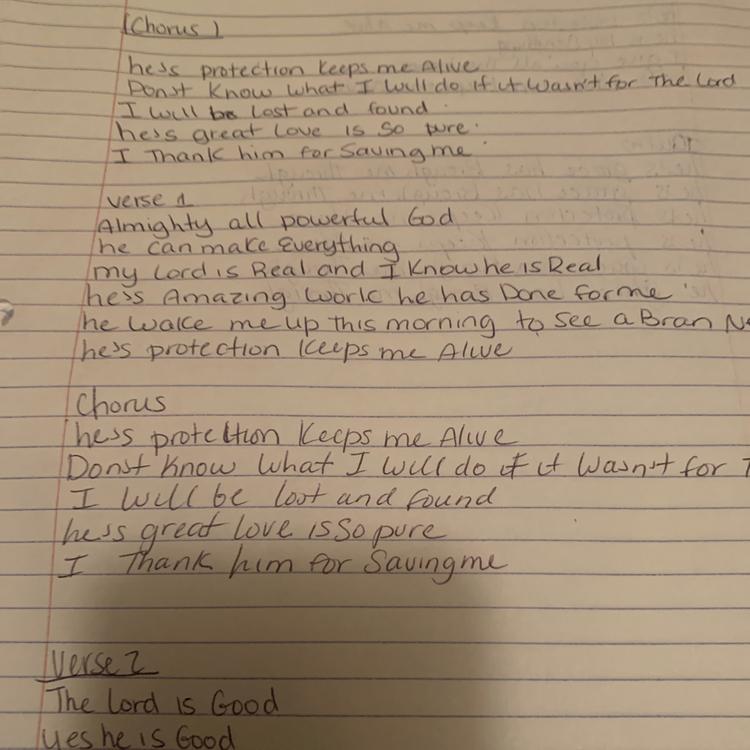 (Chorus)
he's protection keeps me Alive
Don't Know what I will do if it wasn't for The Lord
I will be Lost and found
he's great Love is so pure
I Thank him for Saving me
verse 1
Almighty all powerful God
he can make Everything
my Lord is Real and I Know he is Real
he's Amazing Work he has Done for me
he wake me up this morning to see a Bran
he's protection Keeps me Alive
Chorus
he's protection Keeps me Alive
Don't Know What I will do if it Wasn't for
I will be lost and found
he's great love is So pure
I Thank him for Saving me
Verse 2
The Lord is Good
yes he is Good